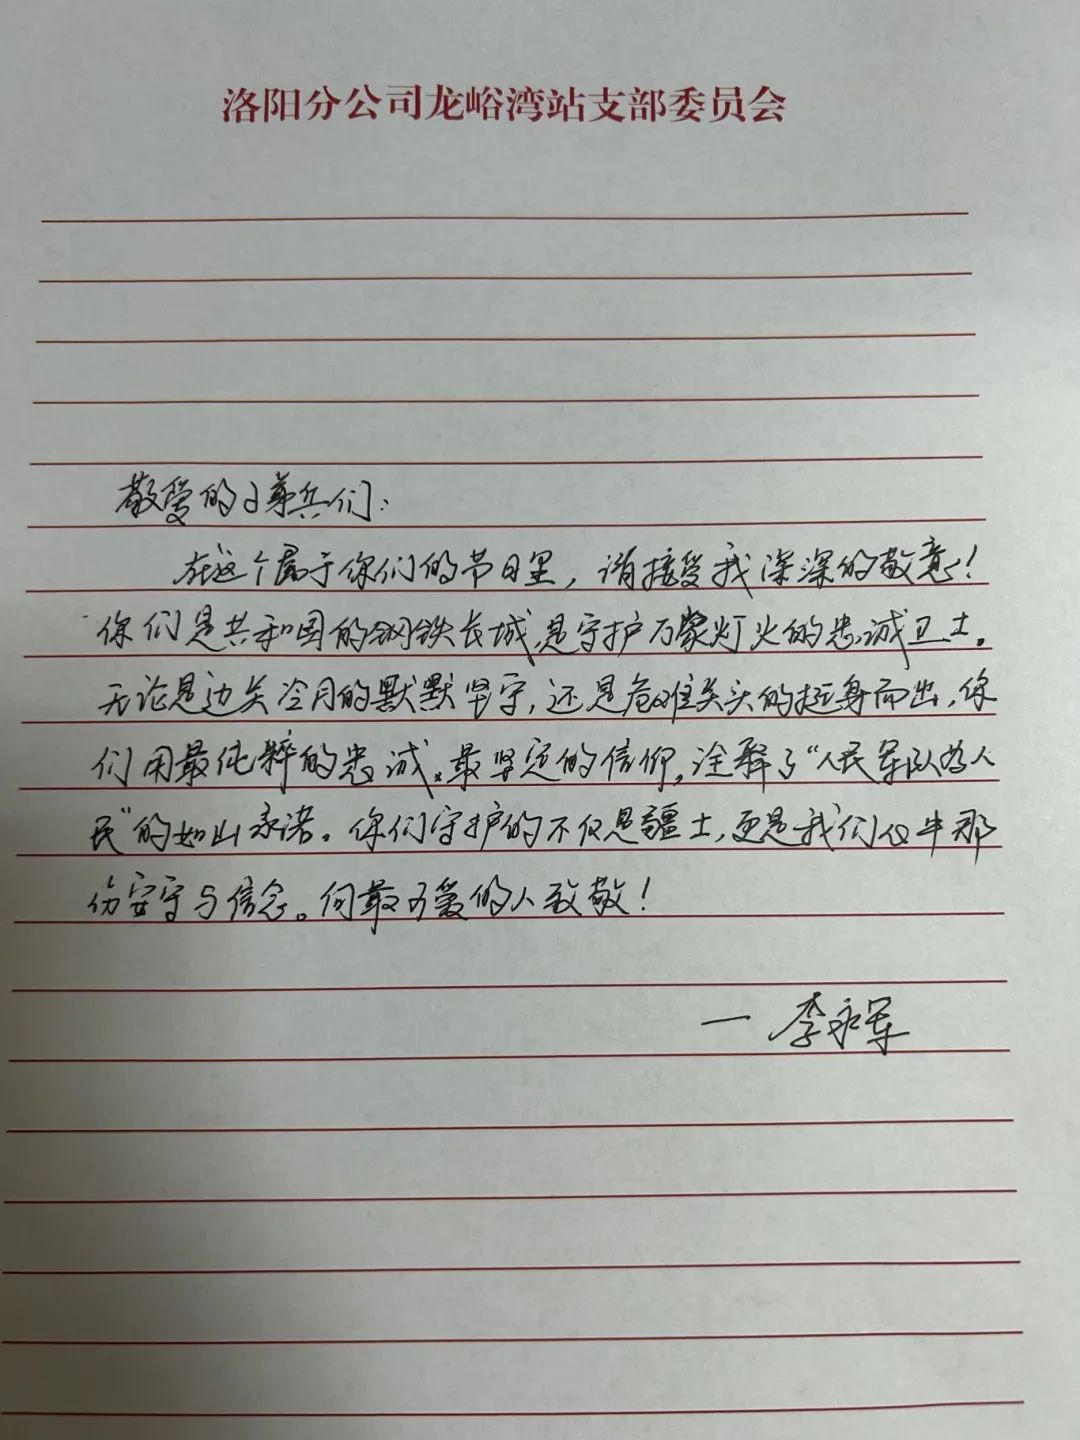 洛阳分公司龙峪湾站支部委员会
敬爱的子弟兵们：
在这个属于你们的节日里，请接受我深深的敬意！
你们是共和国的钢铁长城，是守护万家灯火的忠诚卫士。
无论是边关冷月的默默坚守，还是危难关头的挺身而出，你
们用最纯粹的忠诚、最坚定的信仰，诠释了“人民军队为人
民”的如山承诺。你们守护的不仅是疆土，更是我们心中那
份安宁与信念。向最可爱的人致敬！
— 李永军